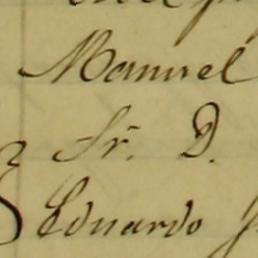 Manuel
Sr. D.
Eduardo